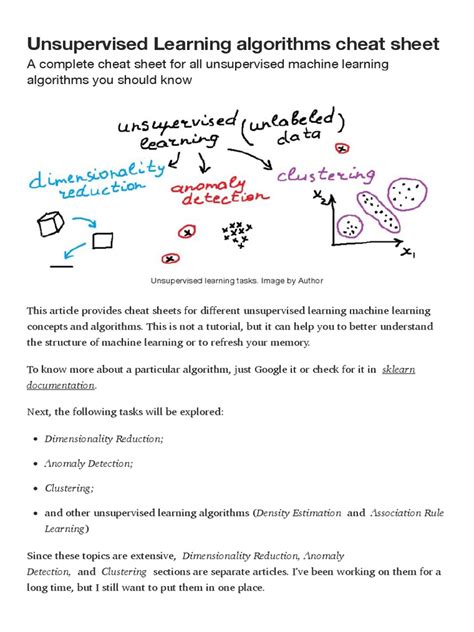 Unsupervised Learning algorithms cheat sheet
A complete cheat sheet for all unsupervised machine learning
algorithms you should know
unsupervised (unlabeled)
learning data
dimensionality
reduction
anomaly
detection
clustering
x₂
x₁
Unsupervised learning tasks. Image by Author
This article provides cheat sheets for different unsupervised learning machine learning
concepts and algorithms. This is not a tutorial, but it can help you to better understand
the structure of machine learning or to refresh your memory.
To know more about a particular algorithm, just Google it or check for it in sklearn
documentation.
Next, the following tasks will be explored:
• Dimensionality Reduction;
• Anomaly Detection;
• Clustering;
• and other unsupervised learning algorithms (Density Estimation and Association Rule
Learning)
Since these topics are extensive, Dimensionality Reduction, Anomaly
Detection, and Clustering sections are separate articles. I've been working on them for a
long time, but I still want to put them in one place.